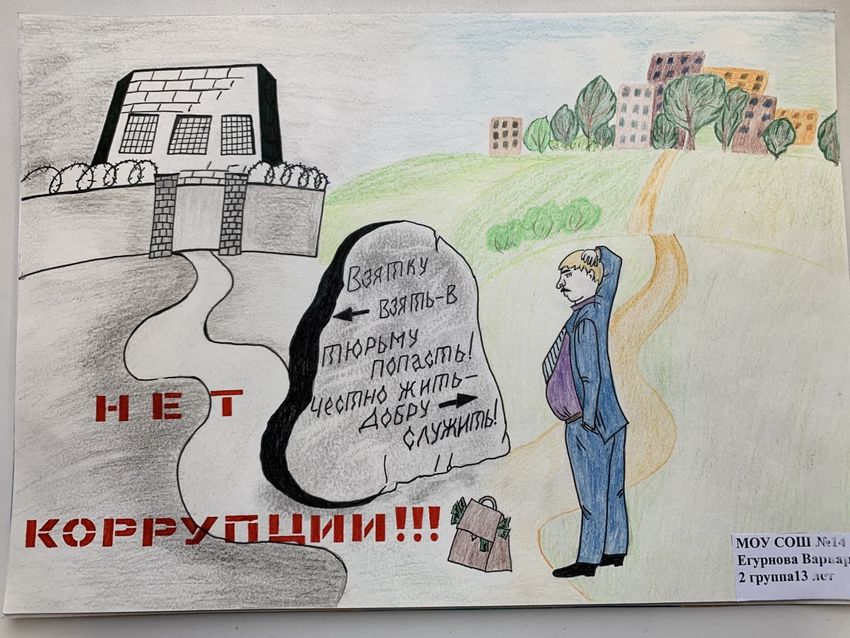 Взятку
взять-в
тюрьму
попасть!
честно жить-
добру
служить!
НЕТ
КОРРУПЦИИ!!!
МОУ СОШ №14
Егурнова Варвар
2 группа13 лет